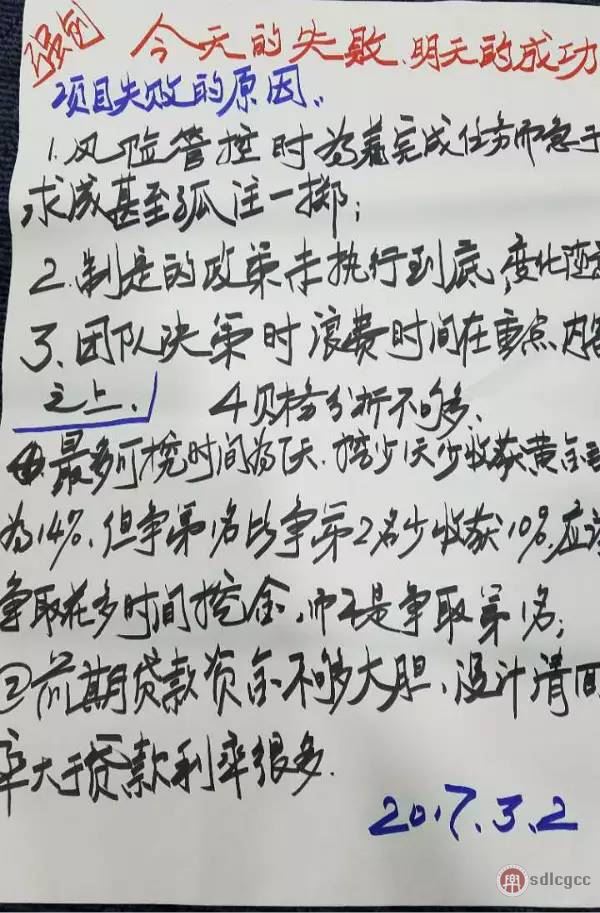 强创
今天的失败、明天的成功
项目失败的原因、
1.风险管控时为着完成任务而急于
求成甚至孤注一掷;
2.制定的政策未执行到底,变化随意
3、团队决策时浪费时间在重点内容
之上、 4贷格分析不够、
①最多可挖时间为7天、挖少1天少收获黄金
为14%,但争第1名比争第2名少收获10%,应该
争取花多时间挖金,而不是争取第1名;
②前期贷款资金不够大胆、没计清回
率大于贷款利率很多.
2017.3.2
sdlcgcc